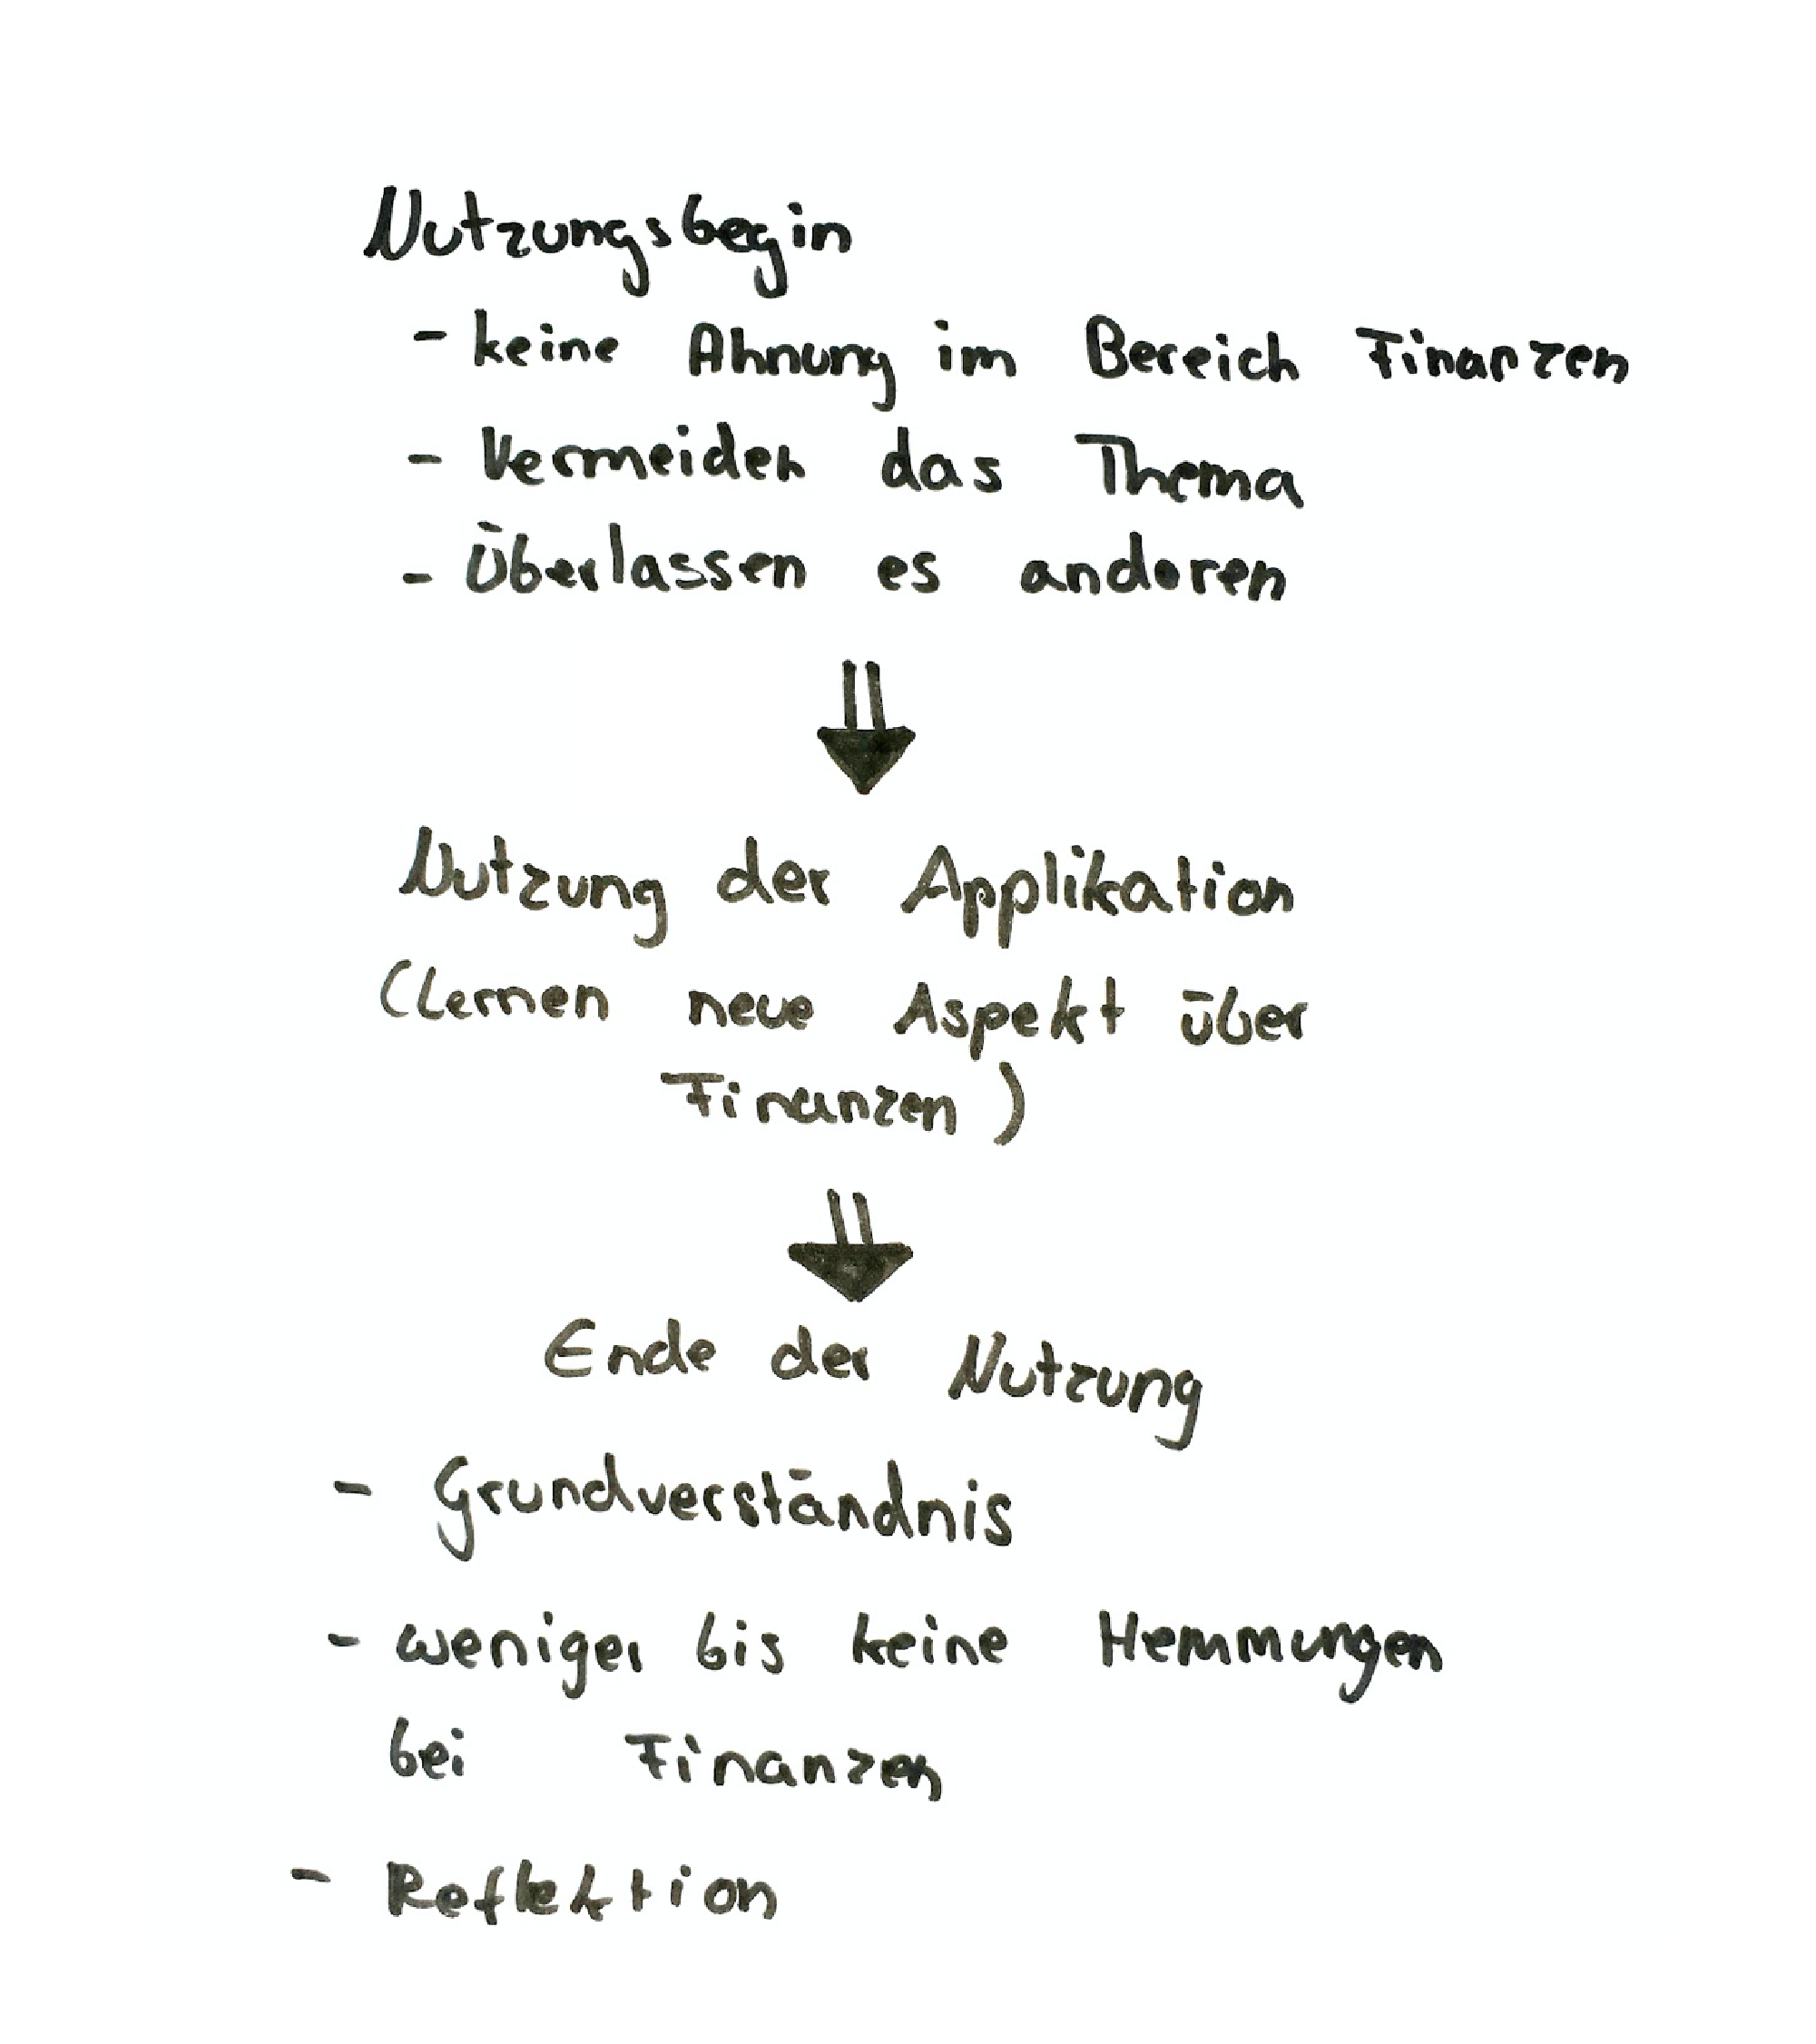 Nutzungsbegin
- keine Ahnung im Bereich Finanzen
- Vermeiden das Thema
- Überlassen es anderen
Nutzung der Applikation
(Lernen neue Aspekt über
Finanzen)
Ende der Nutzung
- Grundverständnis
- weniger bis keine Hemmungen
bei Finanzen
- Reflektion